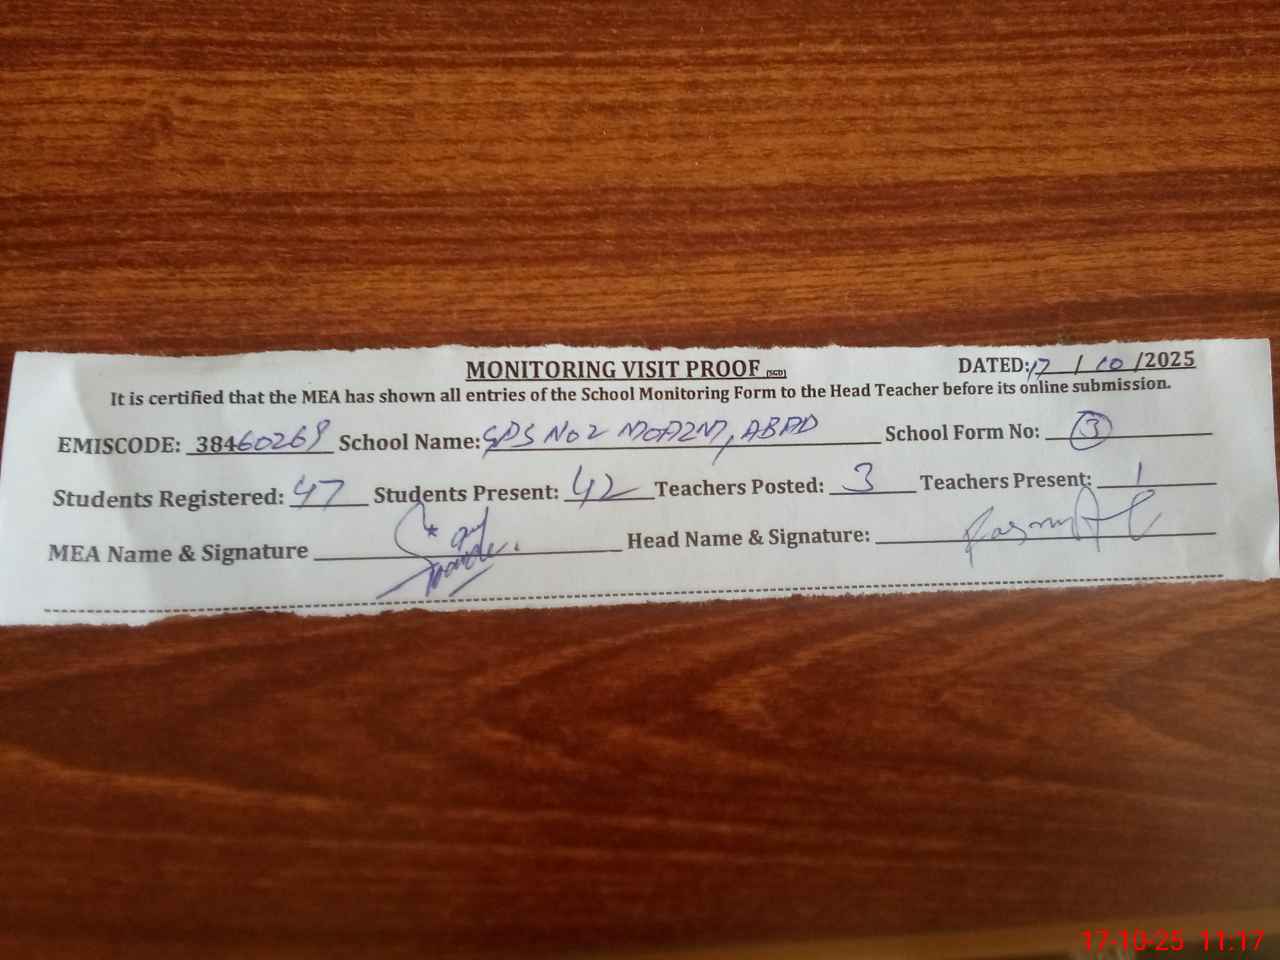 MONITORING VISIT PROOF (SGD) DATED: 17 / 10 /2025
It is certified that the MEA has shown all entries of the School Monitoring Form to the Head Teacher before its online submission.
EMISCODE: 38460269 School Name: GPS No 2 MOAZM, ABAD School Form No: 3
Students Registered: 47 Students Present: 42 Teachers Posted: 3 Teachers Present: 1
MEA Name & Signature Head Name & Signature:
17-10-25 11:17